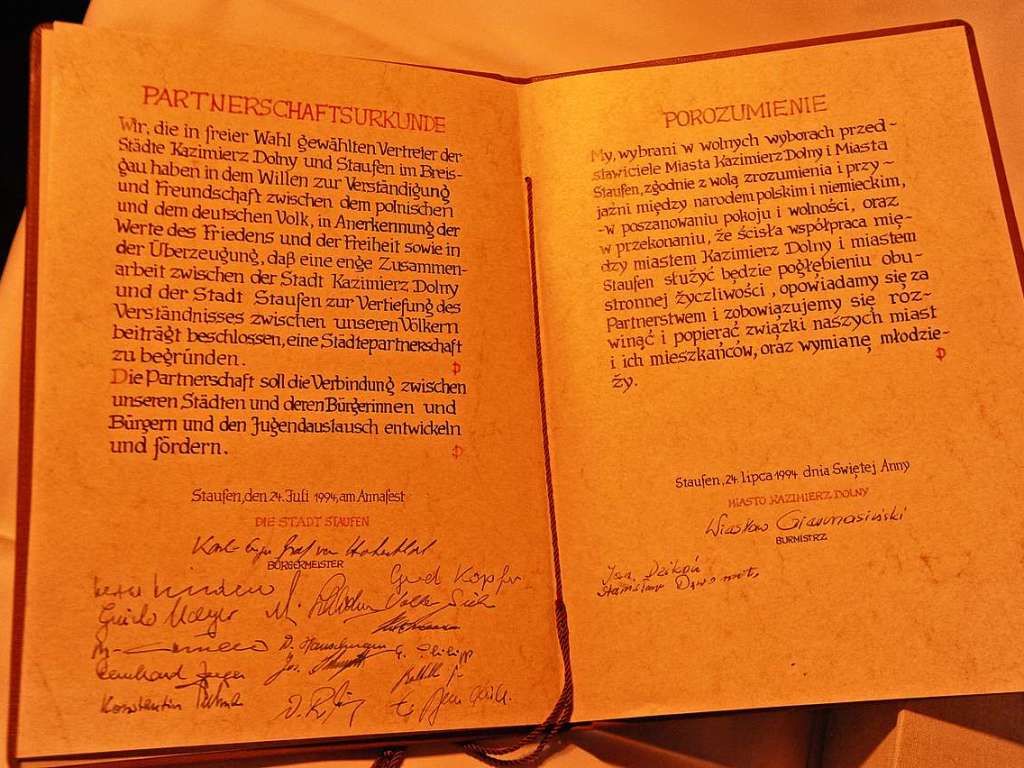 PARTNERSCHAFTSURKUNDE
Wir, die in freier Wahl gewählten Vertreter der
Städte Kazimierz Dolny und Staufen im Breis-
gau haben in dem Willen zur Verständigung
und Freundschaft zwischen dem polnischen
und dem deutschen Volk, in Anerkennung der
Werte des Friedens und der Freiheit sowie in
der Überzeugung, daß eine enge Zusammen-
arbeit zwischen der Stadt Kazimierz Dolny
und der Stadt Staufen zur Vertiefung des
Verständnisses zwischen unseren Völkern
beiträgt beschlossen, eine Städtepartnerschaft
zu begründen.
Die Partnerschaft soll die Verbindung zwischen
unseren Städten und deren Bürgerinnen und
Bürgern und den Jugendaustausch entwickeln
und fördern.
Staufen, den 24. Juli 1994, am Annafest
DIE STADT STAUFEN
Graf von
BÜRGERMEISTER
Gerd Kopfer
Guido Mayer
Konstantin
POROZUMIENIE
My, wybrani w wolnych wyborach przed-
stawiciele Miasta Kazimierz Dolny i Miasta
Staufen, zgodnie z wolą zrozumienia i przy-
jaźni między narodem polskim i niemieckim,
-w poszanowaniu pokoju i wolności, oraz
w przekonaniu, że ścisła współpraca mię-
dzy miastem Kazimierz Dolny i miastem
Staufen służyć będzie pogłębieniu obu-
stronnej życzliwości, opowiadamy się za
Partnerstwem i zobowiązujemy się roz-
winąć i popierać związki naszych miast
i ich mieszkańców, oraz wymianę młodzie-
ży.
Staufen, 24. lipca 1994 dnia Świętej Anny
MIASTO KAZIMIERZ DOLNY
Wiesław
BURMISTRZ
Stanisław